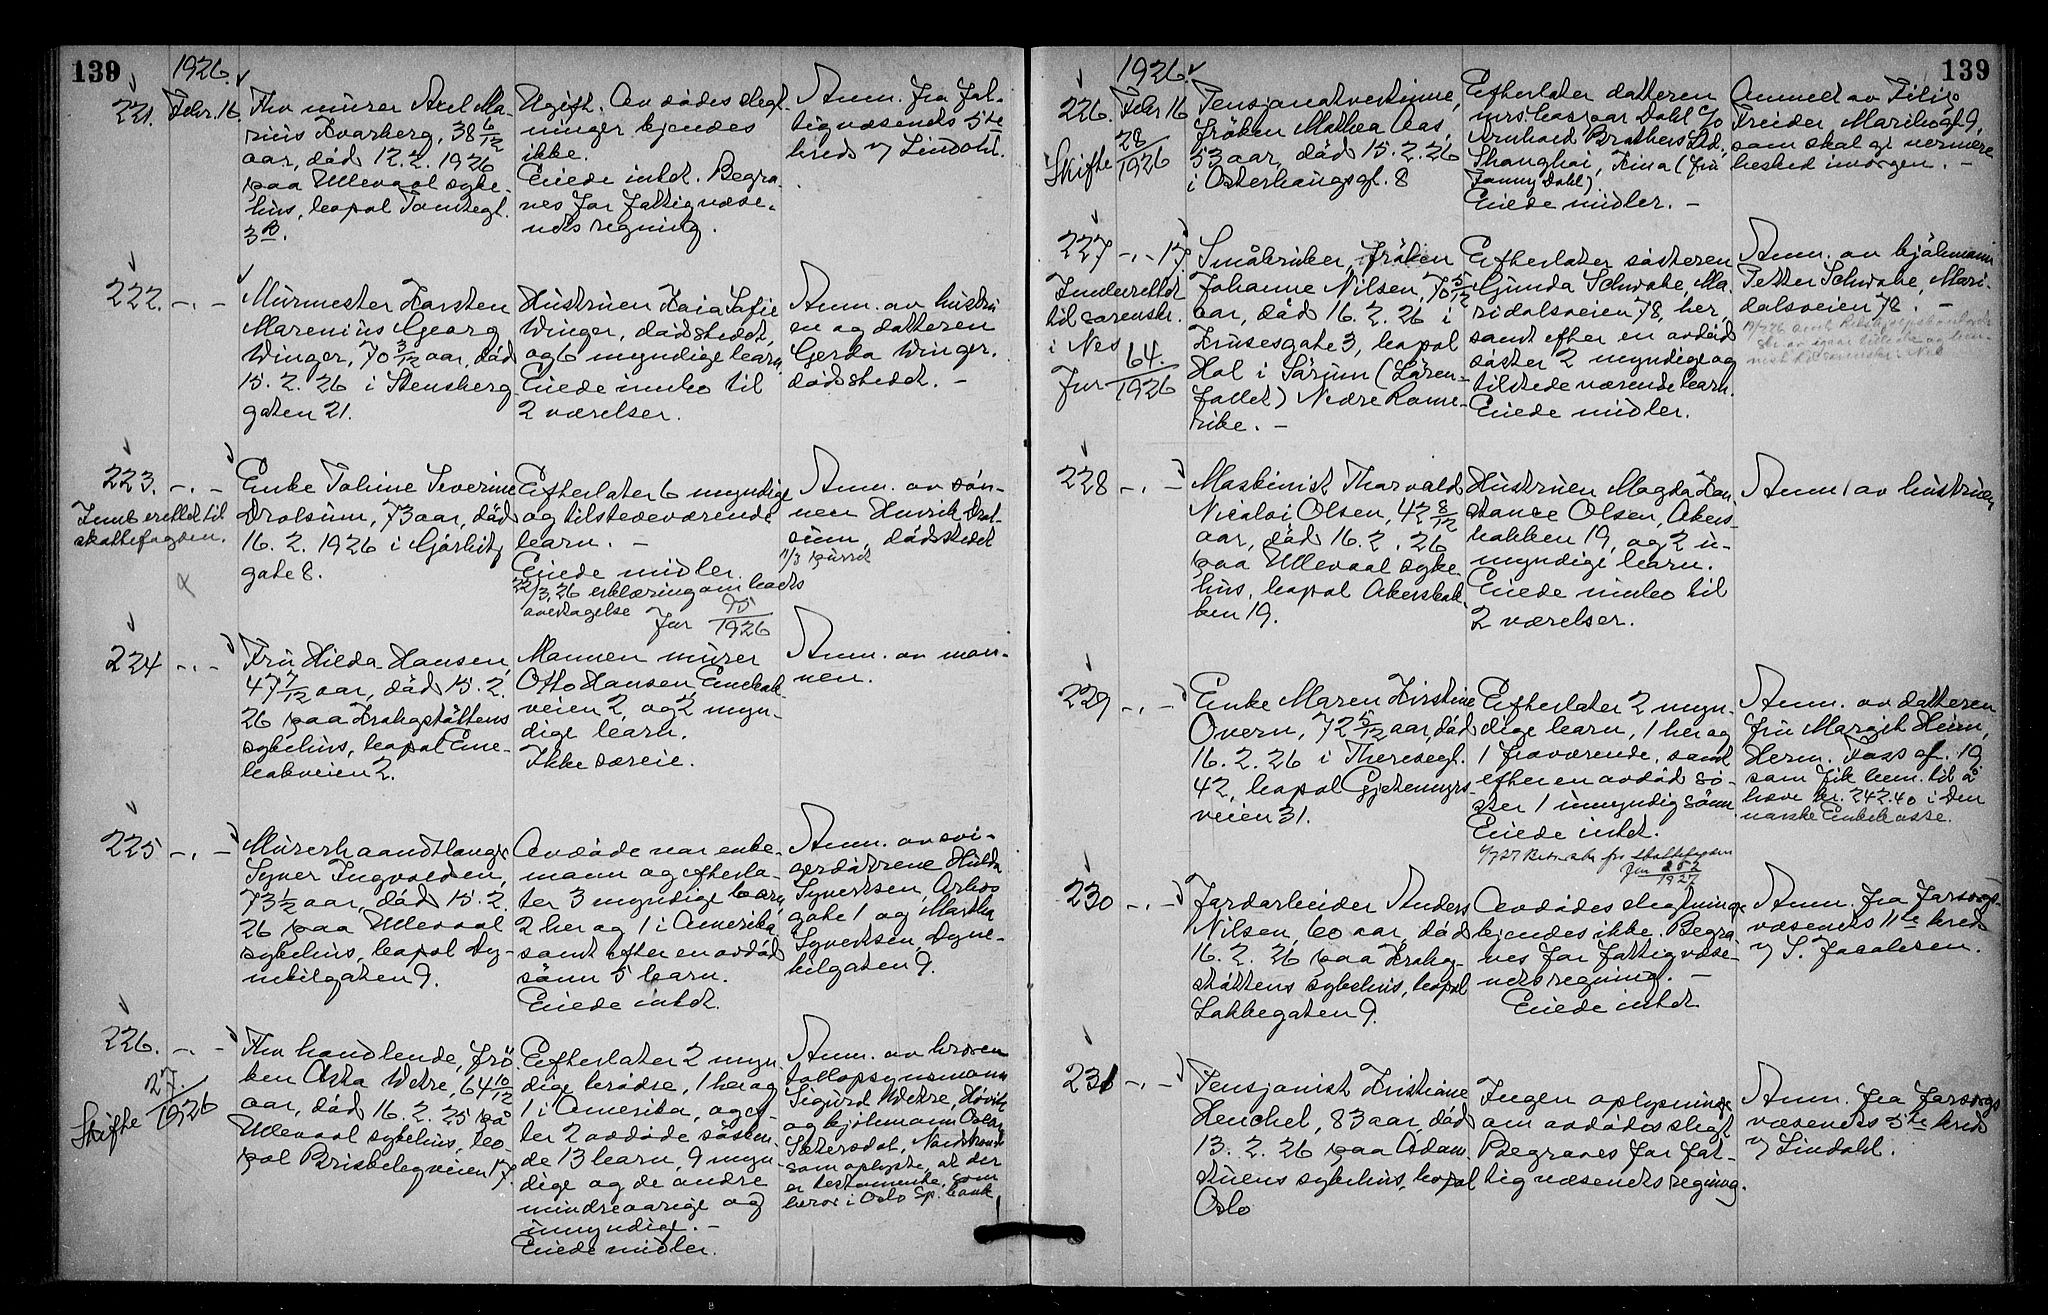 139
1926.
221. Febr. 16.
Fhv murer Axel Ma-
rius Kvarberg, 38 6/12
aar, död 12.2.1926
paa Ullevaal syke-
hus, bopæl Tomtegt.
3B.
Ugift. Avdödes slegt-
ninger kjendes
ikke.
Eiede intet. Begra-
ves for fattigvæse-
nets regning.
Anm. fra fat-
tigvæsenets 5te
kreds v/ Lindahl.
222. -.-
Murmester Karsten
Marenius Georg
Winger, 70 3/12 aar, död
15.2.26 i Stensberg
gaten 21.
Hustruen Kaia Sofie
Winger, dödsstedet,
og 6 myndige barn.
Eiede innbo til
2 værelser.
Anm. av hustru
en og datteren
Gerda Winger,
dödsstedet. -
223. -.-
Innberettet til
skattefogden.
Enke Toline Severine
Drolsum, 73 aar, död
16.2.1926 i Görbitz
gate 8.
Efterlater 6 myndige
og tilstedeværende
barn. -
Eiede midler.
22/3.26 erklæring om boets
overtagelse
Jnr 95/1926
Anm. av sön-
nen Henrik Drol-
sum, dödsstedet
11/3 purret
224 -.-
Fru Hilda Hansen,
47 7/12 aar, död 15.2.
26 paa Krohgstöttens
sykehus, bopæl Ene-
bakveien 2.
Mannen murer
Otto Hansen, Enebak-
veien 2, og 2 myn-
dige barn.
Ikke særeie.
Anm. av man-
nen.
225 -.-
Murerhaandtlanger
Syver Ingvoldsen,
73 1/2 aar, död 15.2.
26 paa Ullevaal
sykehus, bopæl Dy-
nekilgaten 9.
Avdöde var enke-
mann og efterla-
ter 3 myndige barn,
2 her og 1 i Amerika,
samt efter en avdöd
sönn 5 barn.
Eiede intet.
Anm. av svi-
gerdötrene Hulda
Syvertsen, Arbos
gate 1 og Martha
Syvertsen, Dyne-
kilgaten 9.
226. -.-
Skifte 27./1926
Fhv handlende, frö-
ken Asta Wetre, 64 10/12
aar, död 16.2.25 på
Ullevaal sykehus, bo-
pæl Briskebyveien 17.
Efterlater 2 myn-
dige brödre, 1 her og
1 i Amerika, og ef-
ter 2 avdöde sösken-
de 13 barn, 9 myn-
dige og de andre
mindreaarige og
umyndige. -
Eiede midler.
Anm. av broren
tollopsynsmann
Sigurd Wetre, Hövik
og kjöbmann Oskar
Sætersdal, Nordstrand
som oplyste, at der
er testamente, som
beror i Oslo Sp.bank
139
1926.
226. Febr 16
Skifte 28/1926
Pensjonatvertinne,
fröken Mathea Aas,
53 aar, död 15.2.26
i Osterhausgt. 8
Efterlater datteren
Dahl c/o
Arnhold Brothers Ltd.,
Shanghai, Kina (fru
Fanny Dahl).
Eiede midler. -
Anmeldt av Filip
Freider, Maribogt 9,
som skal gi nærmere
besked imorgen. -
227 -.- 17.
Innberettet
til sorenskr.
i Nes
Jnr 64./1926
Småbruker, fröken
Johanne Nilsen, 70 5/12
aar, död 16.2.26 i
Krusesgate 3, bopæl
Hol i Sörum (Lören-
fallet) Nedre Rome-
rike. -
Efterlater sösteren
Gunda Schwabe, Ma-
ridalsveien 78, her,
samt efter en avdöd
söster 2 myndige og
tilstedeværende barn.
Eiede midler.
Anm. av kjöbmann
Petter Schwabe, Mari-
dalsveien 78. -
228 -.-
Maskinist Thorvald
Nicolai Olsen, 42 8/12
aar, död 16.2.26
paa Ullevaal syke
hus, bopæl Akersbak-
ken 19.
Hustruen Magda Kon
stanse Olsen, Akers-
bakken 19, og 2 u-
myndige barn.
Eiede innbo til
2 værelser.
Anm. av hustruen
229 -.-
Enke Maren Kirstine
Overn, 72 5/12 aar, död
16.2.26 i Theresegt.
42, bopæl Gjetemyrs-
veien 31.
Efterlater 2 myn-
dige barn, 1 her og
1 fraværende, samt
efter en avdöd sö-
ster 1 umyndig sönn
Eiede intet.
fra skattefogden
Jnr 252/1927
Anm. av datteren
fru Margit Heim,
Herm. Foss gt. 19,
som fik bem. til å
hæve kr. 242.40 i Den
norske Enkekasse.
230 -.-
Jordarbeider Anders
Nilsen, 60 aar, död
16.2.26 paa Krohg-
stöttens sykehus, bopæl
Lakkegaten 9.
Avdödes slegtninge
kjendes ikke. Begra-
ves for fattigvæse-
nets regning. -
Eiede intet
Anm. fra Forsorgs-
væsenets 11te kreds
v/ S. Jacobsen.
231 -.-
Pensjonist Kristiane
Henchel, 83 aar, död
13.2.26 paa Adam-
stuens sykehus, bopæl
Oslo
Ingen oplysninge
om avdödes slegt
Begraves for fat-
tigvæsenets regning.
Anm. fra Forsorgs
væsenets 5te kreds
v/ Lindahl.